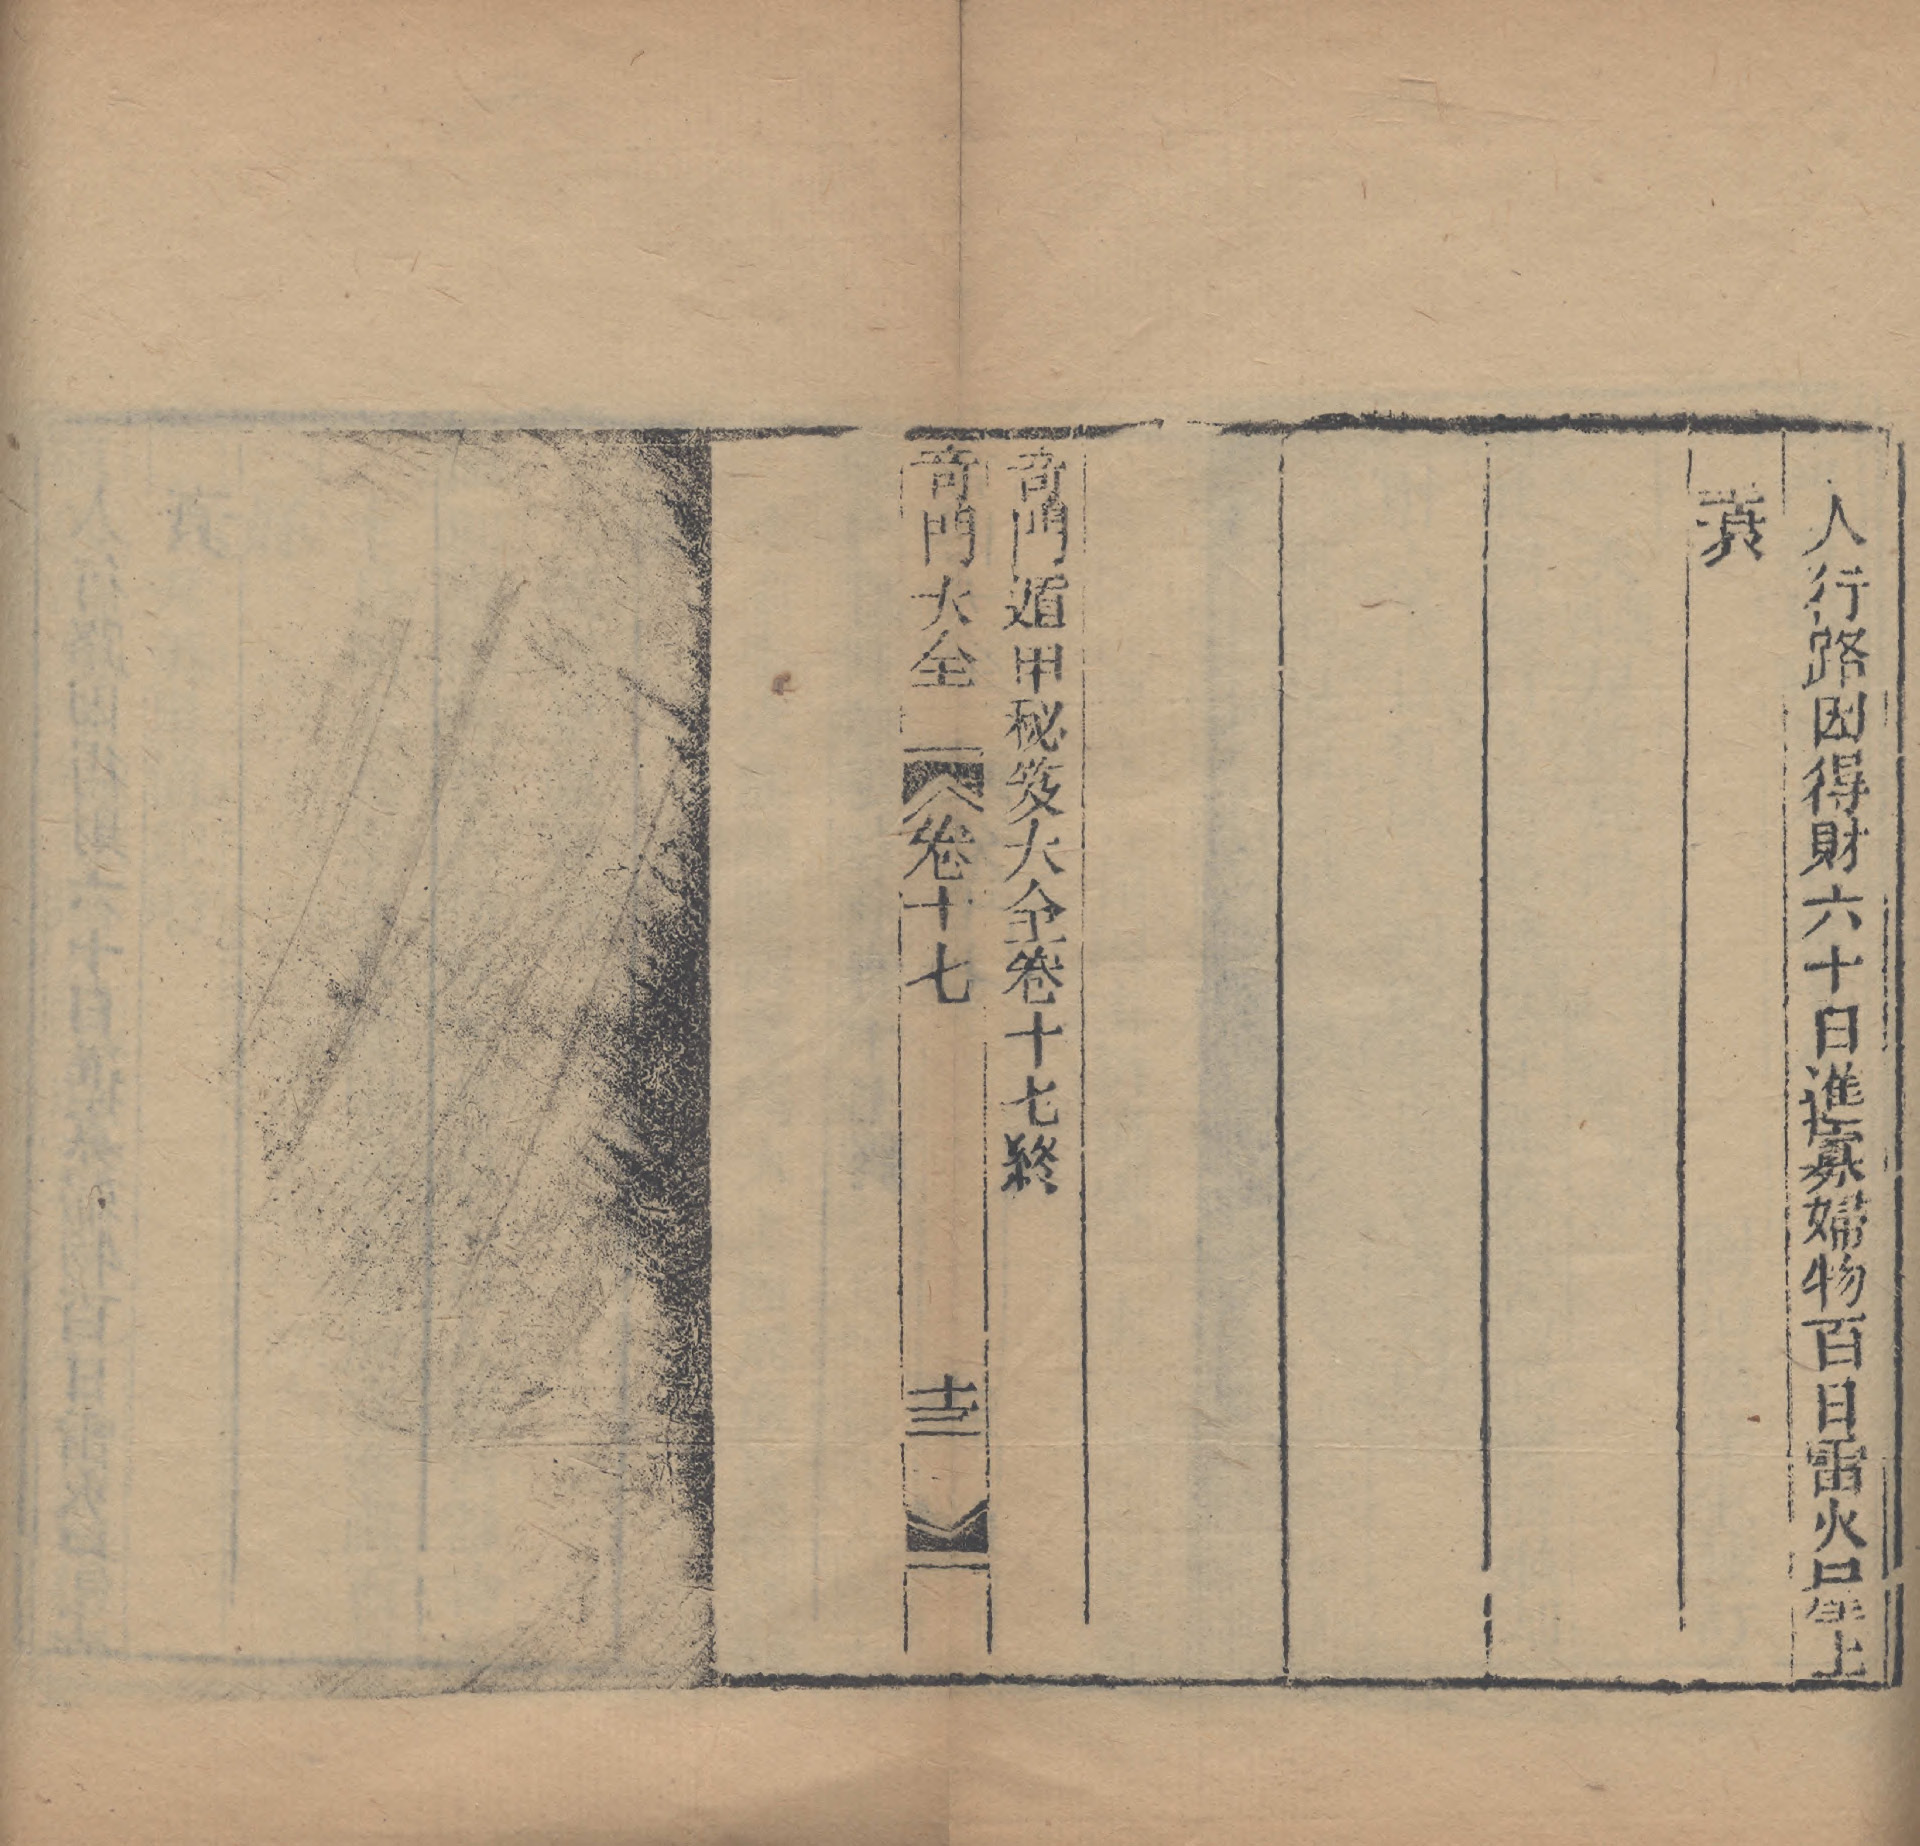 人行路因得財六十日進寡婦物百日雷火屋上
衰
奇門遁甲秘笈大全卷十七終
奇門大全 卷十七 十三